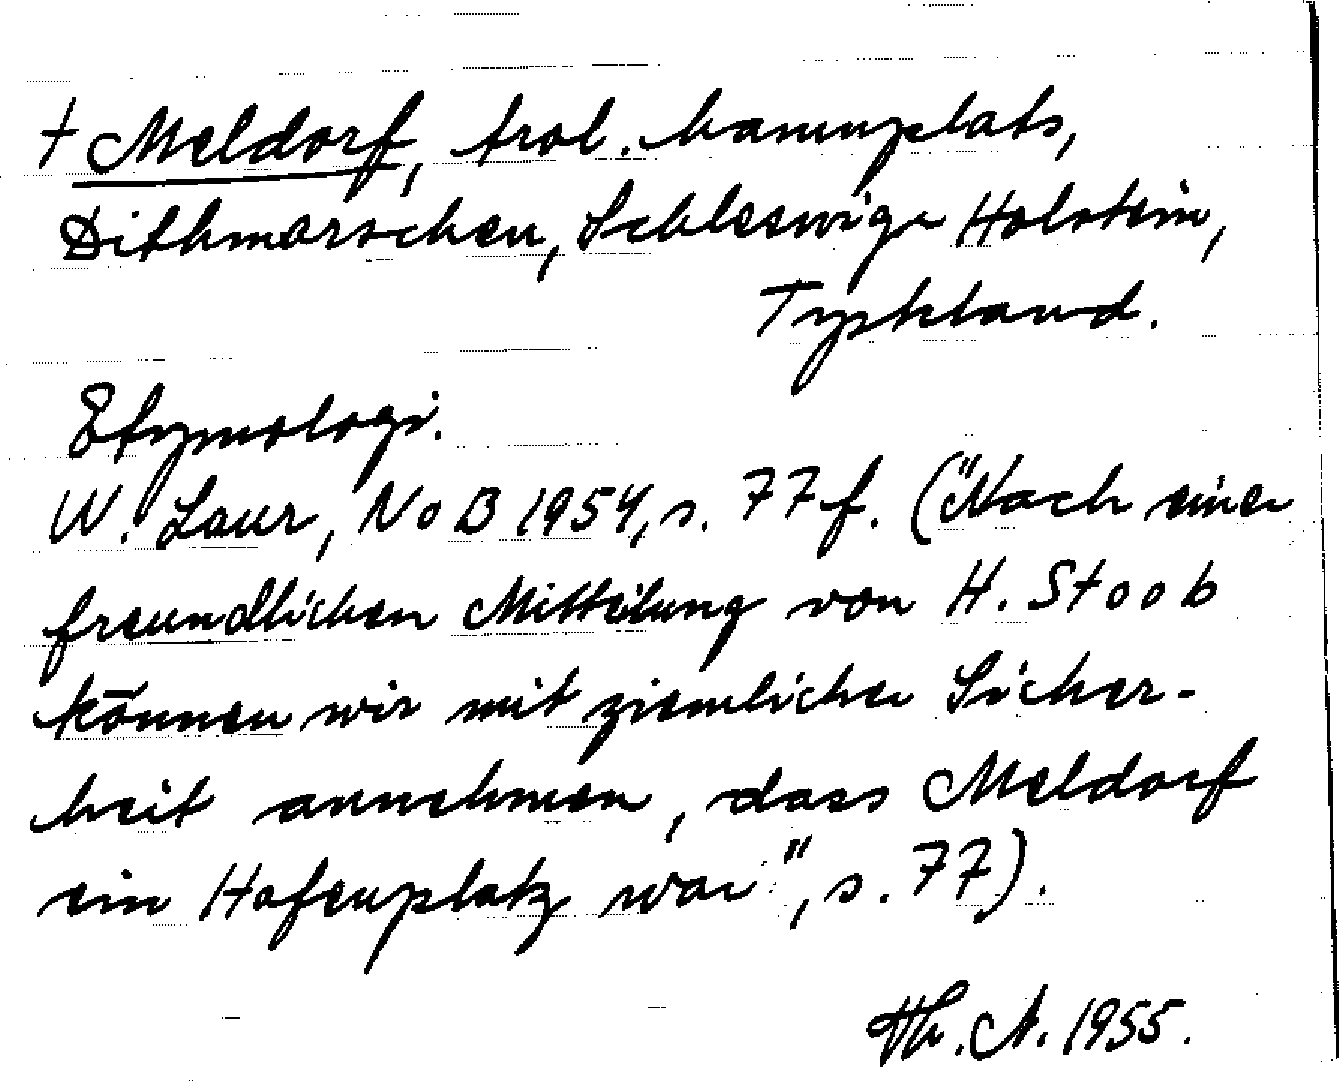 † Meldorf, trol. hamnplats,
Dithmarschen, Schleswig-Holstein,
Tyskland.
Etymologi.
W. Laur, NoB 1954, s. 77 f. ("Nach einer
freundlichen Mitteilung von H. Stoob
können wir mit ziemlicher Sicher-
heit annehmen, dass Meldorf
ein Hafenplatz war", s. 77).
Th. A. 1955.